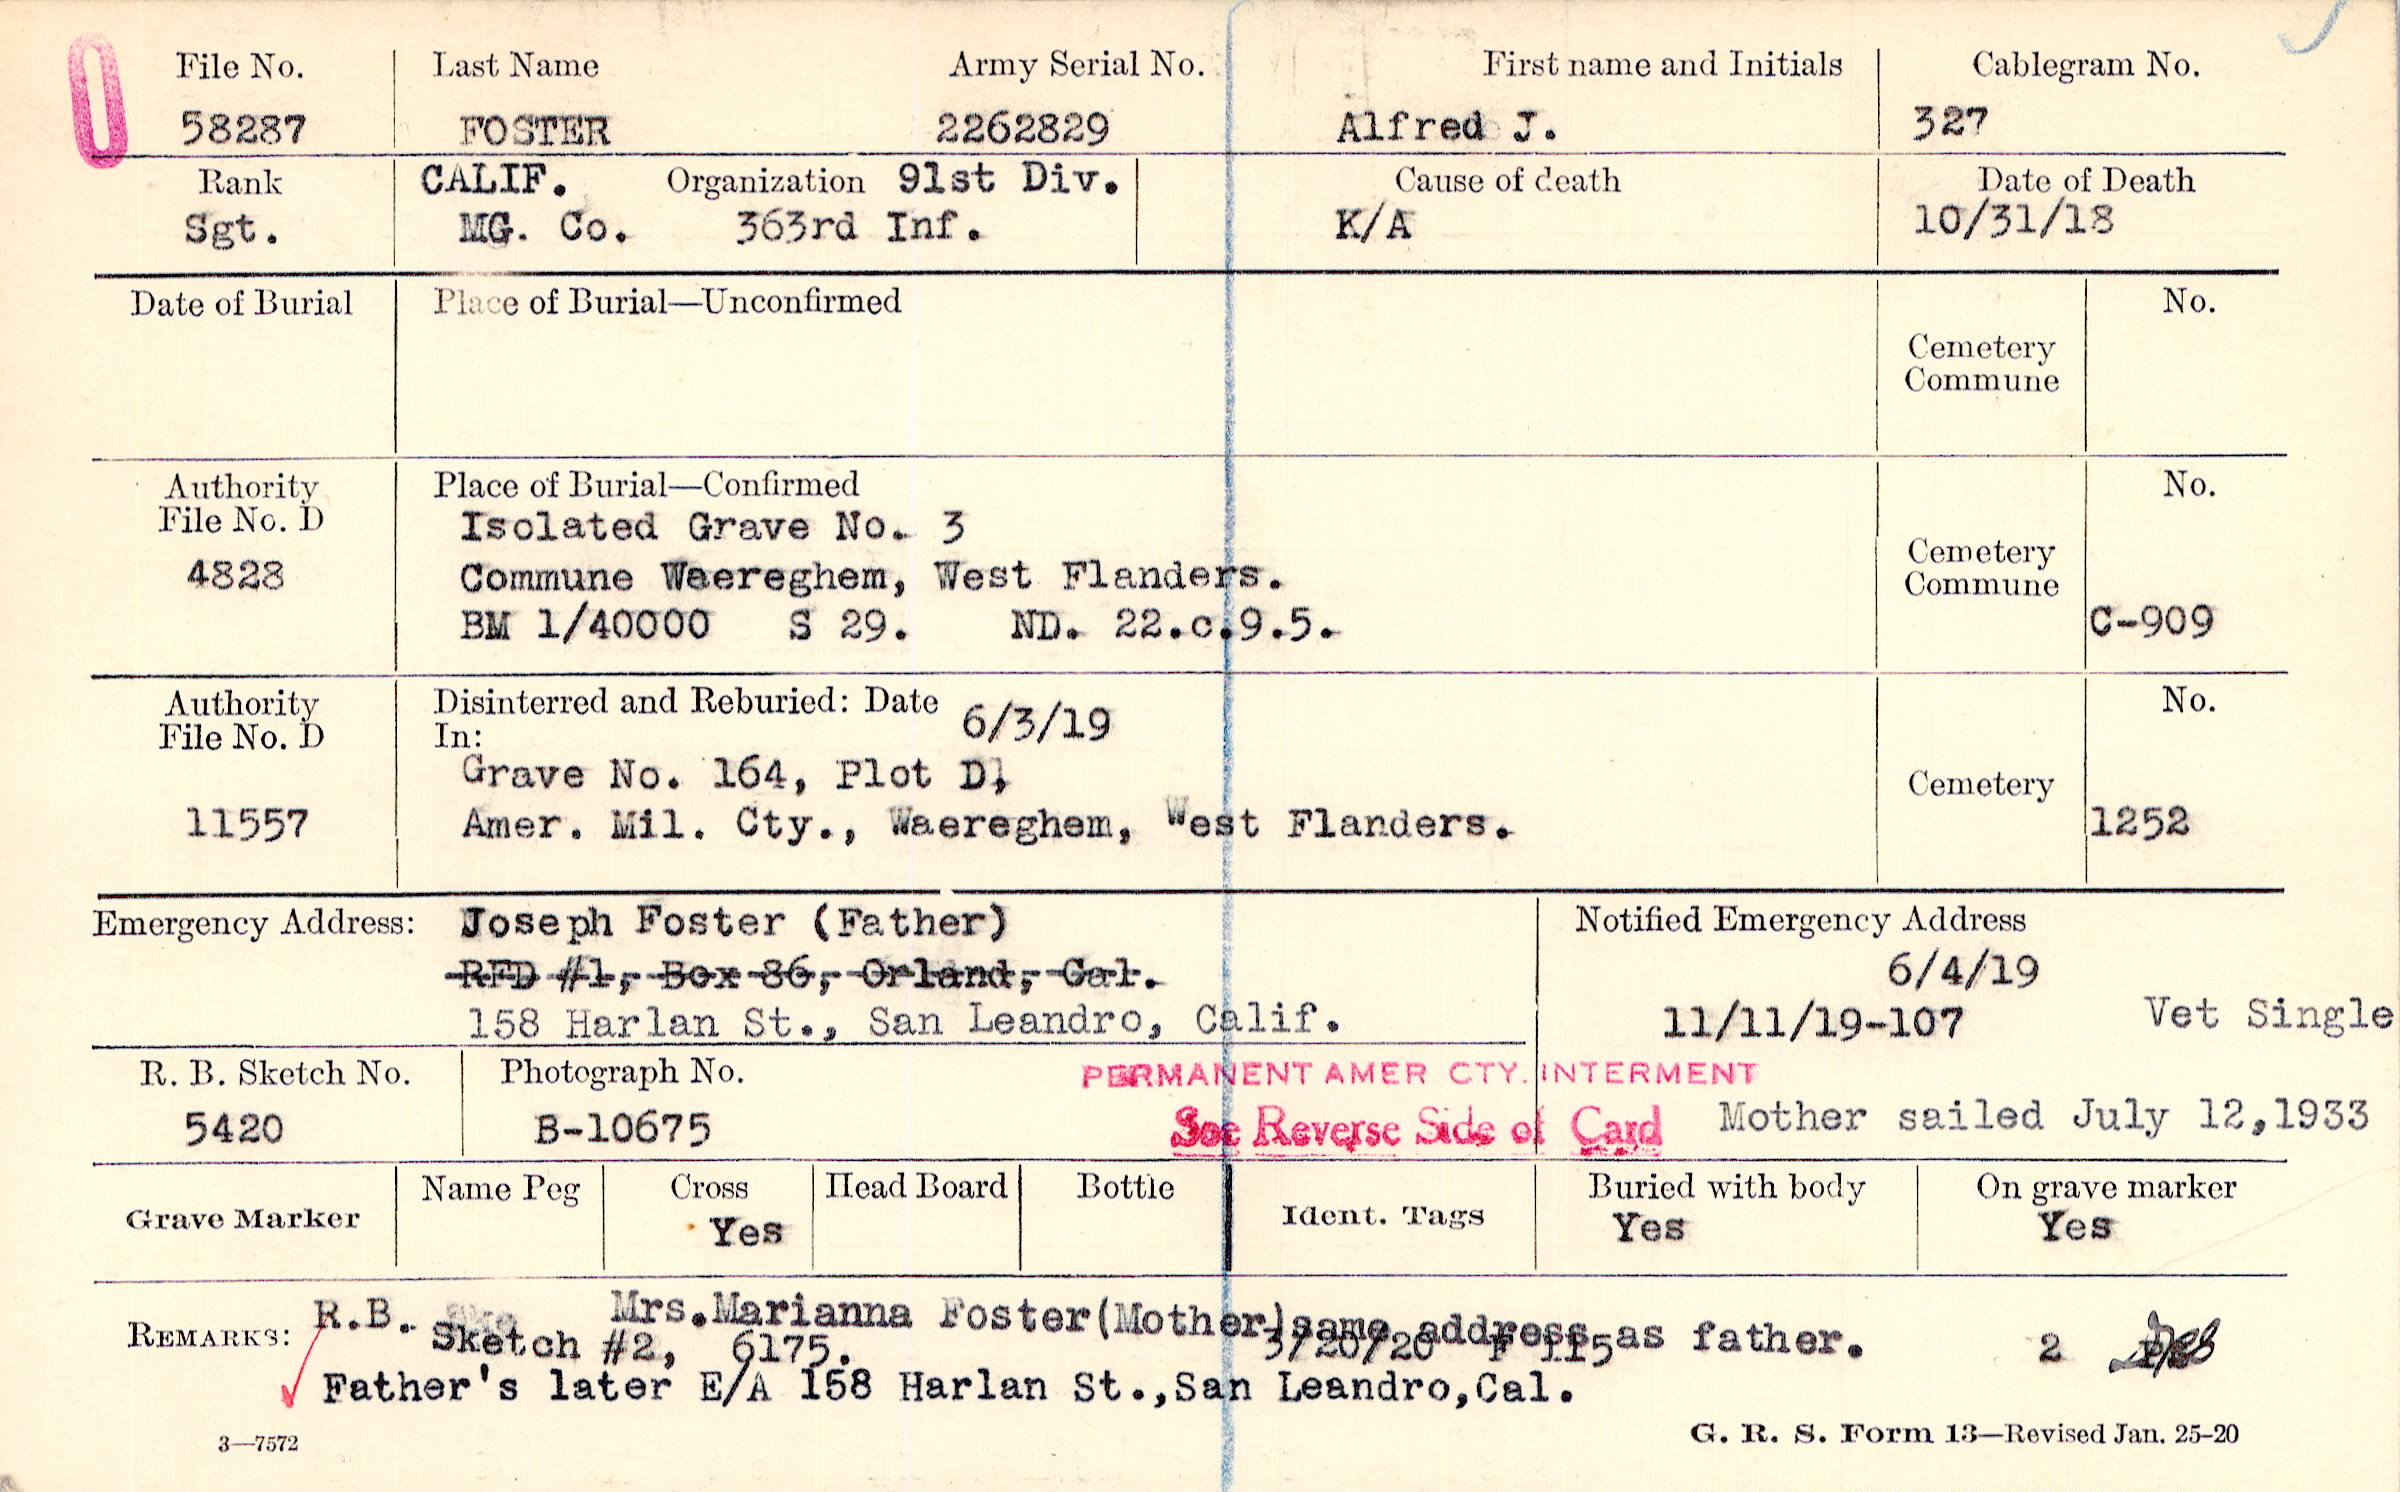 File No. Last Name Army Serial No. First name and Initials Cablegram No.
58287 FOSTER 2262829 Alfred J. 327
Rank CALIF. Organization 91st Div. Cause of death Date of Death
Sgt. MG. Co. 363rd Inf. K/A 10/31/18
Date of Burial Place of Burial—Unconfirmed No.
Cemetery
Commune
Authority Place of Burial—Confirmed No.
File No. D Isolated Grave No. 3
4828 Commune Waereghem, West Flanders. Cemetery
Commune
BM 1/40000 S 29. ND. 22.c.9.5. C-909
Authority Disinterred and Reburied: Date 6/3/19 No.
File No. D In:
Grave No. 164, Plot D, Cemetery
11557 Amer. Mil. Cty., Waereghem, West Flanders. 1252
Emergency Address: Joseph Foster (Father) Notified Emergency Address
RFD #1, Box 86, Orland, Cal. 6/4/19
158 Harlan St., San Leandro, Calif. 11/11/19-107 Vet Single
R. B. Sketch No. Photograph No. PERMANENT AMER CTY. INTERMENT
5420 B-10675 See Reverse Side of Card Mother sailed July 12,1933
Grave Marker Name Peg Cross Head Board Bottle Ident. Tags Buried with body On grave marker
Yes Yes Yes
REMARKS: R.B. Mrs.Marianna Foster(Mother)same address as father.
Sketch #2, 6175. 3/20/20 F 115 2
Father's later E/A 158 Harlan St.,San Leandro,Cal.
3—7572 G. R. S. Form 13—Revised Jan. 25-20